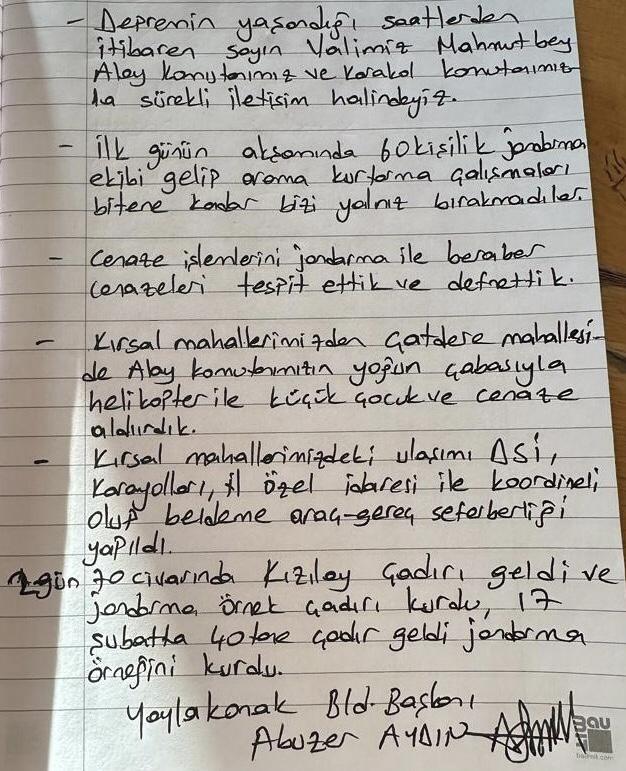 - Depremin yaşandığı saatlerden
itibaren sayın Valimiz Mahmutbey
Alay komutanımız ve karakol komutanımız
la sürekli iletişim halindeyiz.
- ilk günün akşamında 60 kişilik jandarma
ekibi gelip arama kurtarma çalışmaları
bitene kadar bizi yalnız bırakmadılar.
- Cenaze işlemlerini jandarma ile beraber
cenazeleri tespit ettik ve defnettik.
- Kırsal mahallerimizden Çatdere mahallesi-
de Alay komutanımızın yoğun çabasıyla
helikopter ile küçük çocuk ve cenaze
aldırdık.
- Kırsal mahallerimizdeki ulaşımı DSİ,
Karayolları, il özel idaresi ile koordineli
olup beldeme araç-gereç seferberliği
yapıldı.
2.gün 70 civarında Kızılay çadırı geldi ve
jandarma örnek çadırı kurdu, 17
şubatta 40 tane çadır geldi jandarma
örneğini kurdu.
Yaylakonak Bld. Başkanı
Abuzer AYDIN
Bau